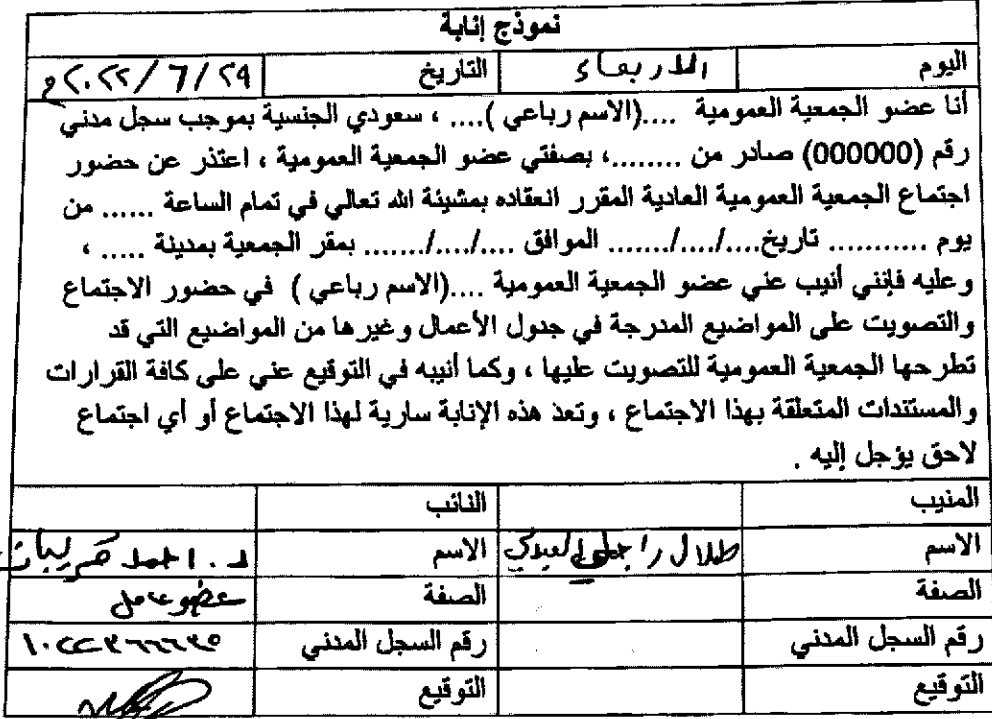 نموذج إنابة
اليوم الاربعاء التاريخ ٢٩/٦/٢٠٢٢م
أنا عضو الجمعية العمومية ....(الاسم رباعي ).... ، سعودي الجنسية بموجب سجل مدني
رقم (000000) صادر من ........، بصفتي عضو الجمعية العمومية ، اعتذر عن حضور
اجتماع الجمعية العمومية العادية المقرر انعقاده بمشيئة الله تعالي في تمام الساعة ...... من
يوم ........... تاريخ..../..../....... الموافق ..../..../....... بمقر الجمعية بمدينة ..... ،
وعليه فإنني أنيب عني عضو الجمعية العمومية ....(الاسم رباعي ) في حضور الاجتماع
والتصويت على المواضيع المدرجة في جدول الأعمال وغيرها من المواضيع التي قد
تطرحها الجمعية العمومية للتصويت عليها ، وكما أنيبه في التوقيع عني على كافة القرارات
والمستندات المتعلقة بهذا الاجتماع ، وتعد هذه الإنابة سارية لهذا الاجتماع أو أي اجتماع
لاحق يؤجل إليه .
المنيب النائب
الاسم طلال الاسم د. احمد
الصفة الصفة عضو عامل
رقم السجل المدني رقم السجل المدني
التوقيع التوقيع